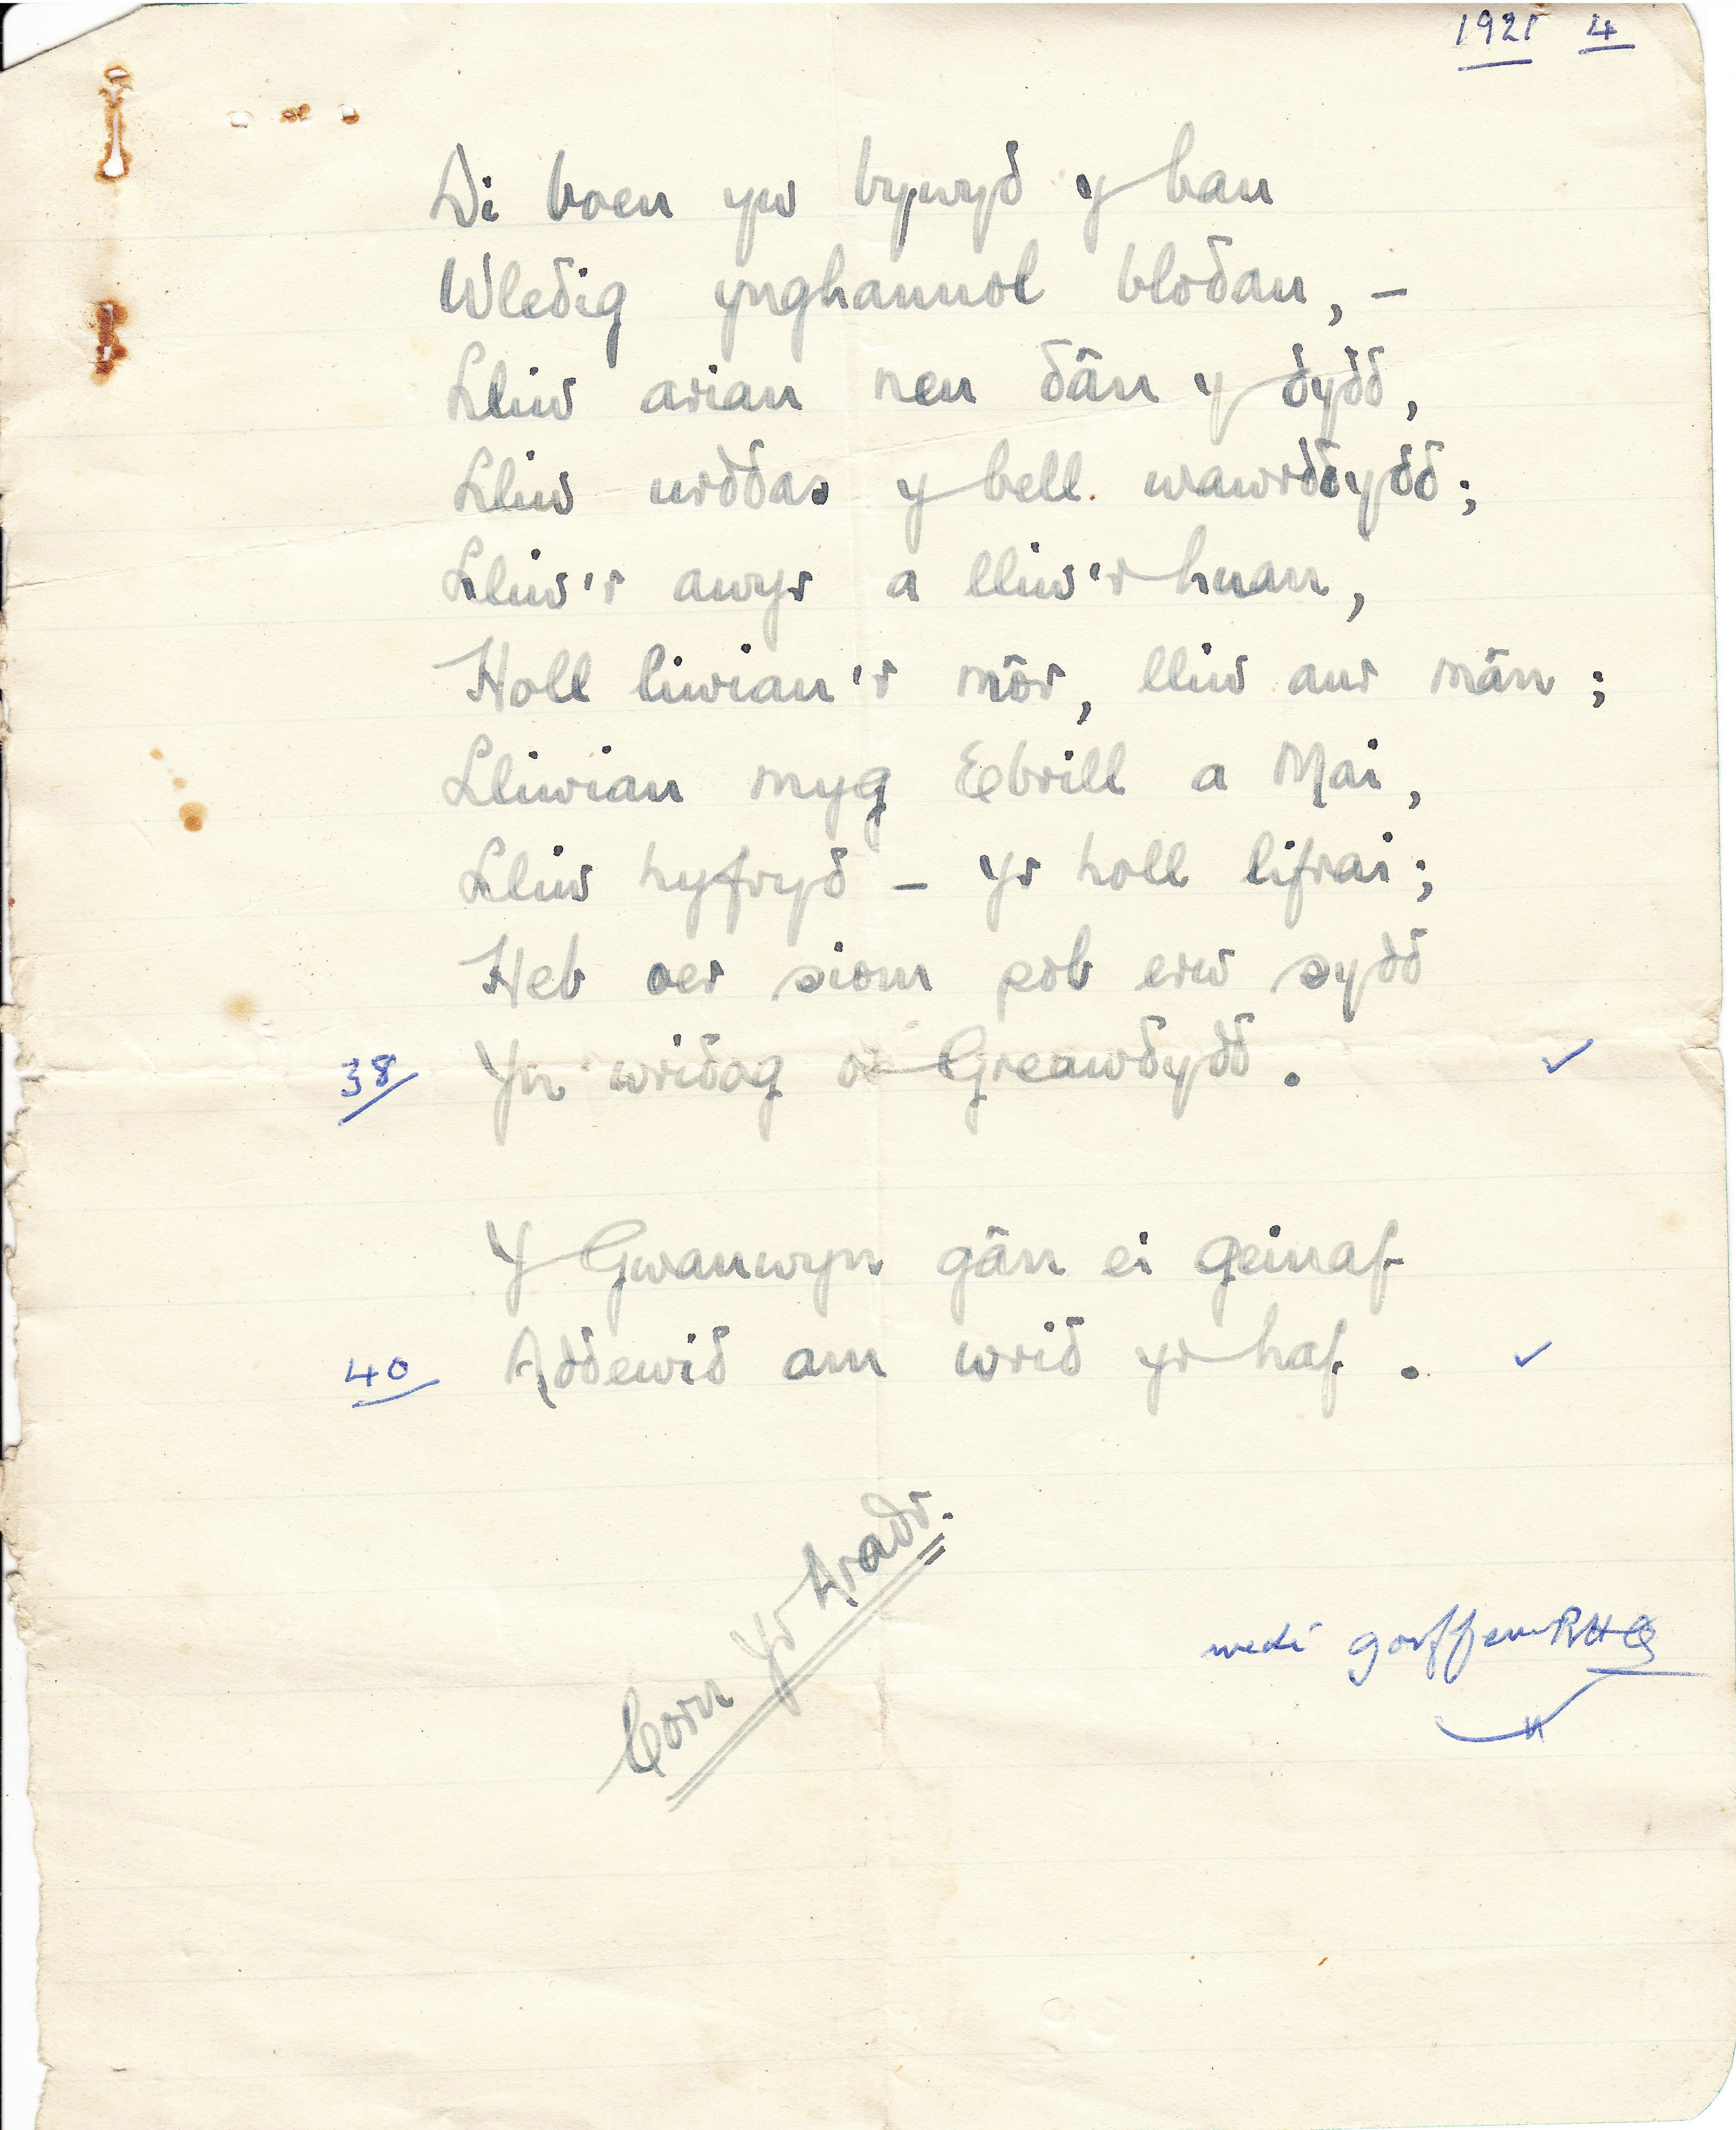 1921 4
Di boen yw bywyd y bau
Wledig ynghannol blodau, –
Lliw arian neu dân y dydd,
Lliw urddas y bell wawrddydd;
Lliw'r awyr a lliw'r huan,
Holl liwiau'r môr, lliw aur mân;
Lliwiau myg Ebrill a Mai,
Lliw hyfryd – yr holl lifrai;
Heb oer siom pob erw sydd
38 Yn wridog o Greawdydd. ✓
Y Gwanwyn gân ei geinaf
40 Addewid am wrid yr haf. ✓
Corn Yr Aradr.
wedi gorffen